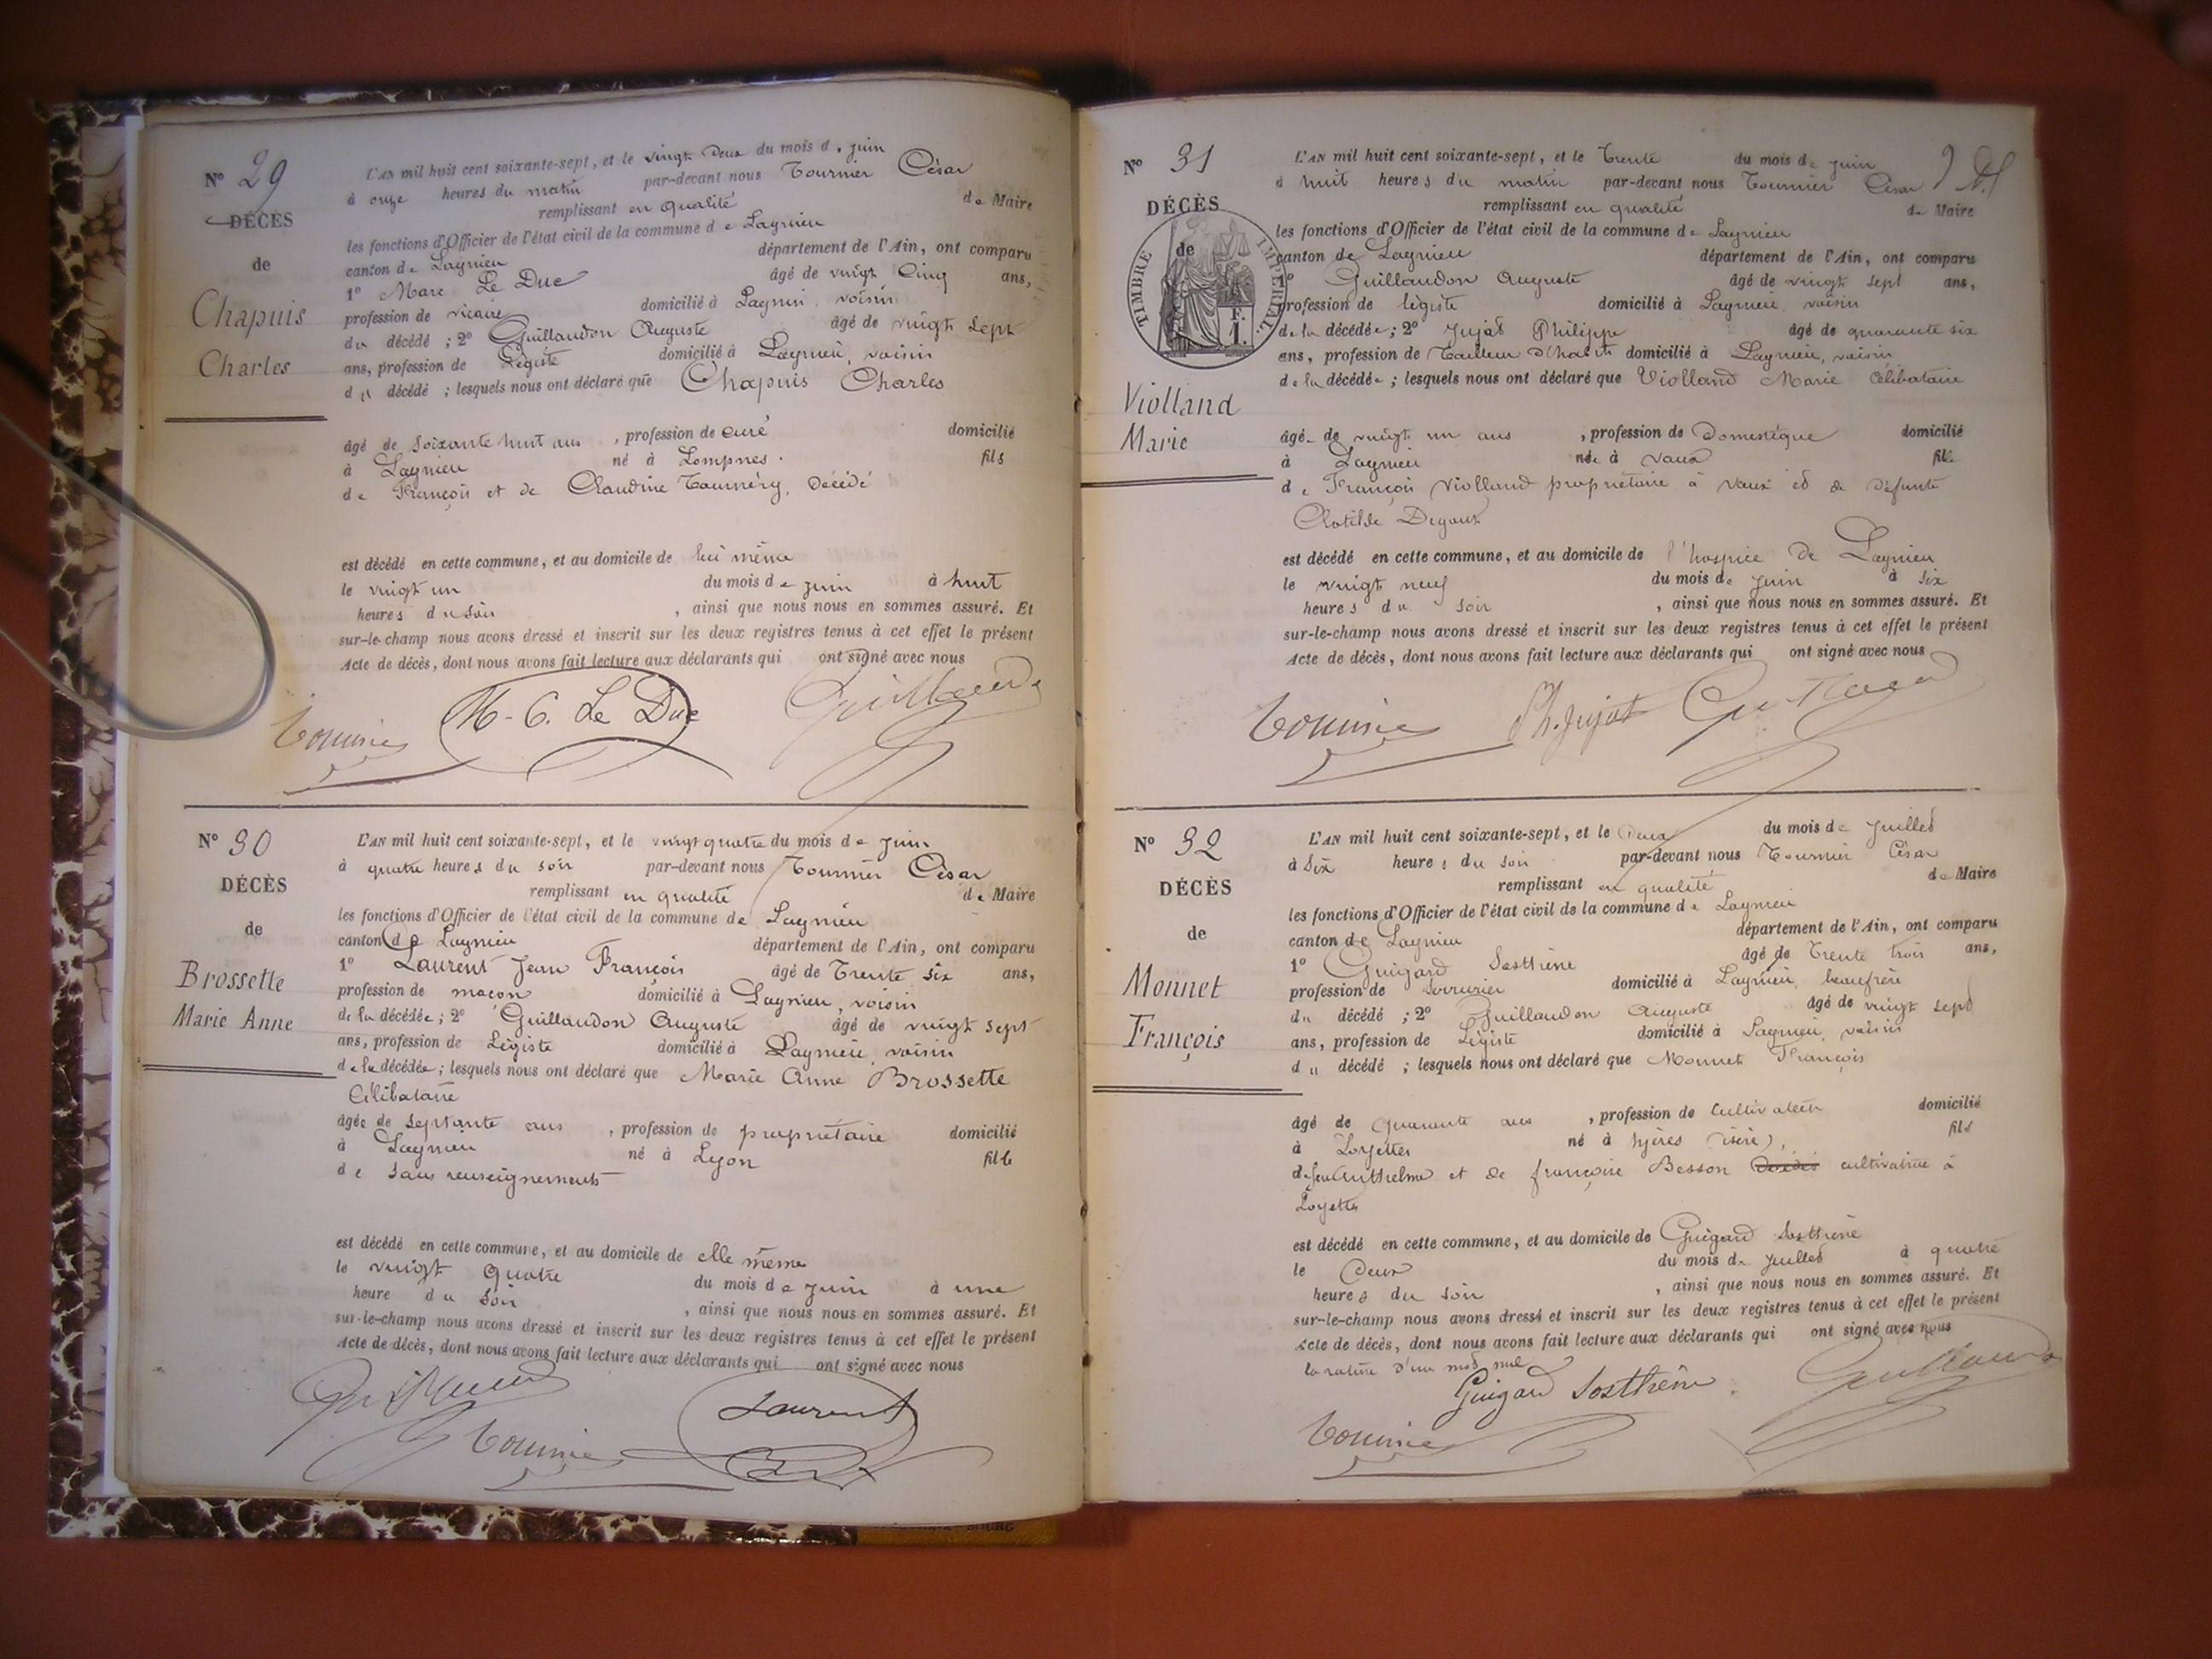 N° 29
DÉCÈS
de
Chapuis
Charles
L'AN mil huit cent soixante-sept, et le vingt deux du mois de juin
à onze heures du matin par-devant nous Tournier César
remplissant en qualité de Maire
les fonctions d'Officier de l'état civil de la commune de Lagnieu
canton de Lagnieu département de l'Ain, ont comparu
1° Marc Le Duc âgé de vingt cinq ans,
profession de vicaire domicilié à Lagnieu, voisin
du décédé ; 2° Guillaudon Auguste âgé de vingt sept
ans, profession de Légiste domicilié à Lagnieu, voisin
du décédé ; lesquels nous ont déclaré que Chapuis Charles
âgé de soixante huit ans, profession de curé domicilié
à Lagnieu né à Lompnes. fils
de François et de Claudine Tournéry, décédé
est décédé en cette commune, et au domicile de lui même
le vingt un du mois de juin à huit
heures du soir, ainsi que nous nous en sommes assuré. Et
sur-le-champ nous avons dressé et inscrit sur les deux registres tenus à cet effet le présent
Acte de décès, dont nous avons fait lecture aux déclarants qui ont signé avec nous
Tournier M-C. Le Duc Guillaudon
N° 30
DÉCÈS
de
Brossette
Marie Anne
L'AN mil huit cent soixante-sept, et le vingt quatre du mois de juin
à quatre heures du soir par-devant nous Tournier César
remplissant en qualité de Maire
les fonctions d'Officier de l'état civil de la commune de Lagnieu
canton de Lagnieu département de l'Ain, ont comparu
1° Laurent Jean François âgé de Trente six ans,
profession de maçon domicilié à Lagnieu, voisin
de la décédée ; 2° Guillaudon Auguste âgé de vingt sept
ans, profession de Légiste domicilié à Lagnieu, voisin
de la décédée ; lesquels nous ont déclaré que Marie Anne Brossette
Célibataire
âgée de septante ans, profession de propriétaire domicilié
à Lagnieu né à Lyon fille
de sans renseignements
est décédé en cette commune, et au domicile de elle même
le vingt quatre du mois de juin à une
heure du soir, ainsi que nous nous en sommes assuré. Et
sur-le-champ nous avons dressé et inscrit sur les deux registres tenus à cet effet le présent
Acte de décès, dont nous avons fait lecture aux déclarants qui ont signé avec nous
Guillaudon Tournier Laurent
N° 31
DÉCÈS
de
TIMBRE IMPÉRIAL
F.
1.
Violland
Marie
L'AN mil huit cent soixante-sept, et le Trente du mois de juin
à huit heures du matin par-devant nous Tournier César
remplissant en qualité de Maire
les fonctions d'Officier de l'état civil de la commune de Lagnieu
canton de Lagnieu département de l'Ain, ont comparu
1° Guillaudon Auguste âgé de vingt sept ans,
profession de légiste domicilié à Lagnieu, voisin
de la décédée ; 2° Jujat Philippe âgé de quarante six
ans, profession de Tailleur d'habits domicilié à Lagnieu, voisin
de la décédée ; lesquels nous ont déclaré que Violland Marie célibataire
âgée de vingt un ans, profession de Domestique domicilié
à Lagnieu née à Vaux fille
de François Violland propriétaire à Vaux et de Défunte
Clotilde Degoux
est décédé en cette commune, et au domicile de l'hospice de Lagnieu
le vingt neuf du mois de juin à six
heures du soir, ainsi que nous nous en sommes assuré. Et
sur-le-champ nous avons dressé et inscrit sur les deux registres tenus à cet effet le présent
Acte de décès, dont nous avons fait lecture aux déclarants qui ont signé avec nous
Tournier Ph. Jujat Guillaudon
N° 32
DÉCÈS
de
Monnet
François
L'AN mil huit cent soixante-sept, et le Deux du mois de juillet
à six heures du soir par-devant nous Tournier César
remplissant en qualité de Maire
les fonctions d'Officier de l'état civil de la commune de Lagnieu
canton de Lagnieu département de l'Ain, ont comparu
1° Guigard Sosthène âgé de Trente trois ans,
profession de serrurier domicilié à Lagnieu, beaufrère
du décédé ; 2° Guillaudon Auguste âgé de vingt sept
ans, profession de Légiste domicilié à Lagnieu, voisin
du décédé ; lesquels nous ont déclaré que Monnet François
âgé de quarante ans, profession de cultivateur domicilié
à Loyettes né à hyères (isère), fils
de feu Anthelme et de françoise Besson décédés cultivatrice à
Loyettes
est décédé en cette commune, et au domicile de Guigard Sosthène
le Deux du mois de juillet à quatre
heures du soir, ainsi que nous nous en sommes assuré. Et
sur-le-champ nous avons dressé et inscrit sur les deux registres tenus à cet effet le présent
Acte de décès, dont nous avons fait lecture aux déclarants qui ont signé avec nous
la rature d'un mot nul
Guigard Sosthène Guillaudon
Tournier